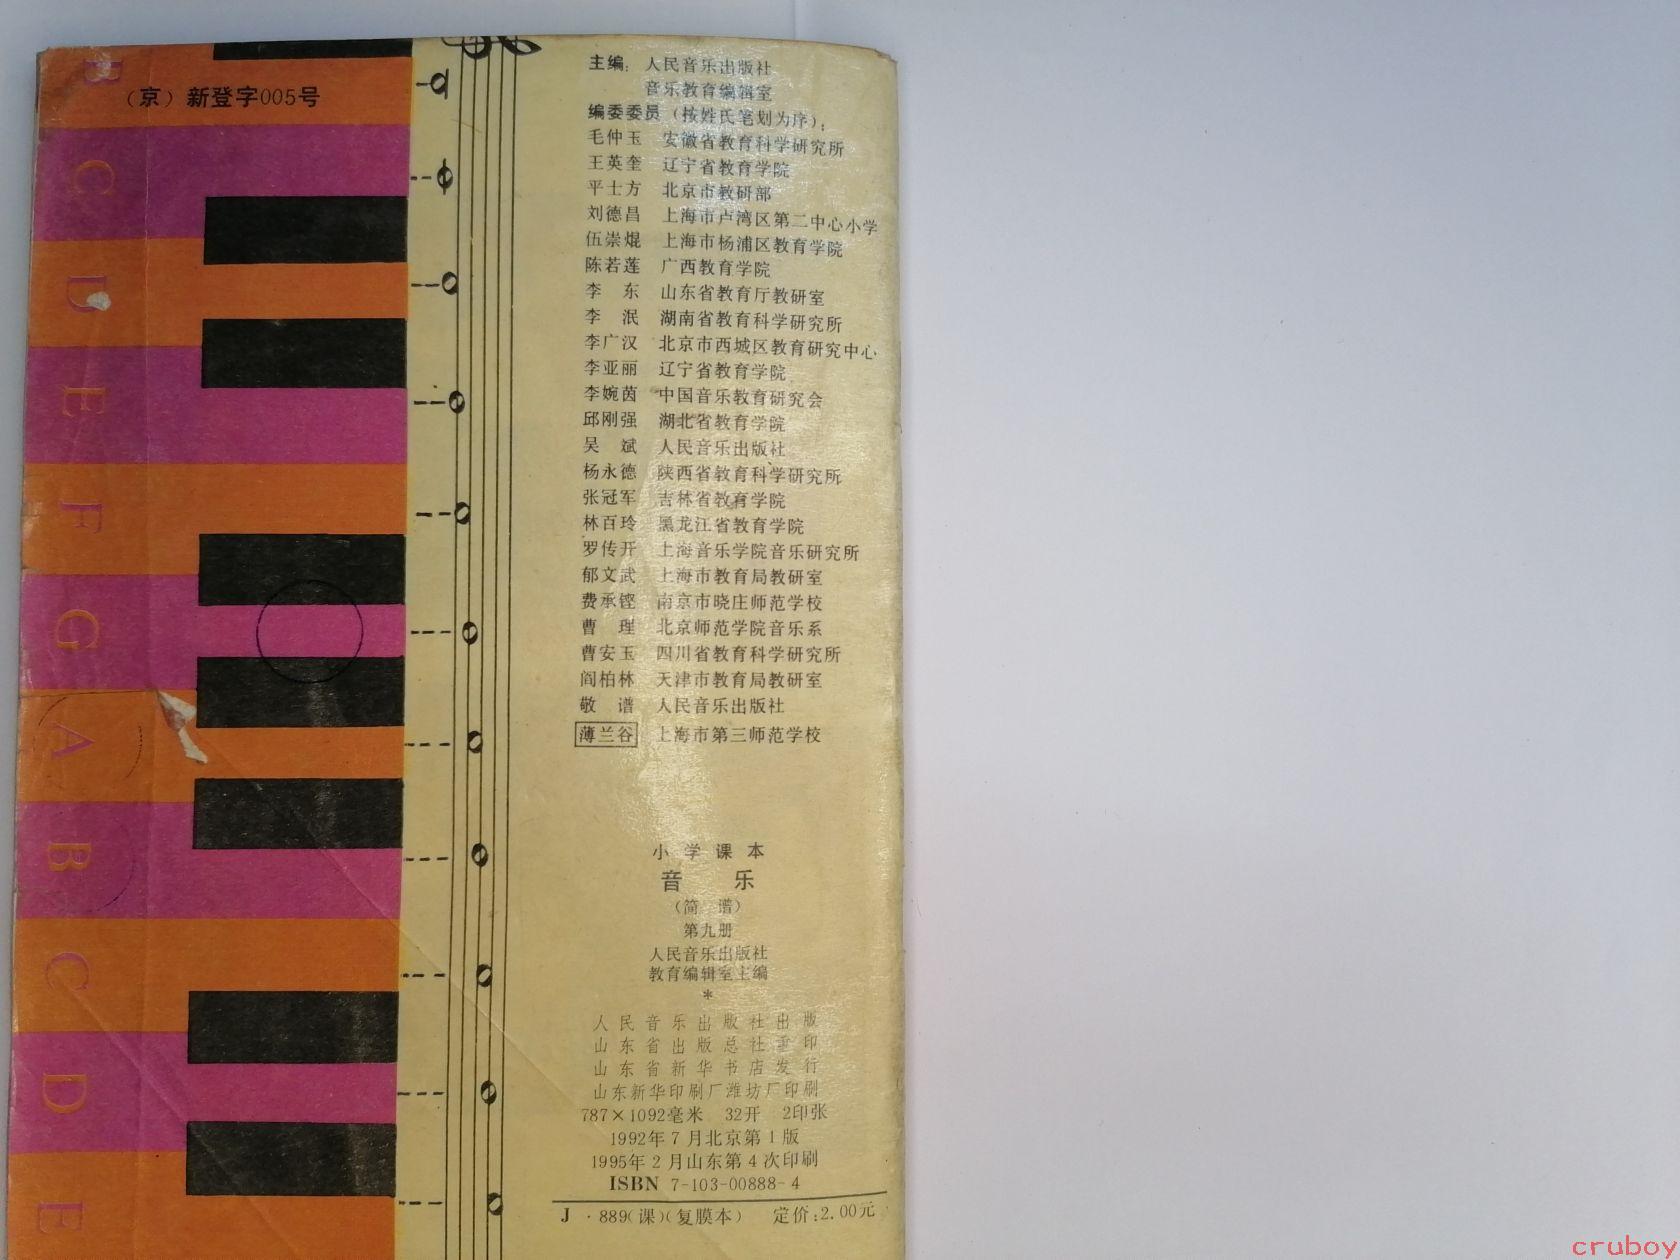 （京）新登字005号
B
C
D
E
F
G
A
B
C
D
E
主编：人民音乐出版社
音乐教育编辑室
编委委员（按姓氏笔划为序）：
毛仲玉 安徽省教育科学研究所
王英奎 辽宁省教育学院
平士方 北京市教研部
刘德昌 上海市卢湾区第二中心小学
伍崇焜 上海市杨浦区教育学院
陈若莲 广西教育学院
李 东 山东省教育厅教研室
李 泯 湖南省教育科学研究所
李广汉 北京市西城区教育研究中心
李亚丽 辽宁省教育学院
李婉茵 中国音乐教育研究会
邱刚强 湖北省教育学院
吴 斌 人民音乐出版社
杨永德 陕西省教育科学研究所
张冠军 吉林省教育学院
林百玲 黑龙江省教育学院
罗传开 上海音乐学院音乐研究所
郁文武 上海市教育局教研室
费承铿 南京市晓庄师范学校
曹 理 北京师范学院音乐系
曹安玉 四川省教育科学研究所
阎柏林 天津市教育局教研室
敬 谱 人民音乐出版社
薄兰谷 上海市第三师范学校
小学课本
音 乐
（简 谱）
第九册
人民音乐出版社
教育编辑室主编
*
人民音乐出版社出版
山东省出版总社重印
山东省新华书店发行
山东新华印刷厂潍坊厂印刷
787×1092毫米 32开 2印张
1992年7月北京第1版
1995年2月山东第4次印刷
ISBN 7-103-00888-4
J·889（课）（复膜本） 定价：2.00元
cruboy